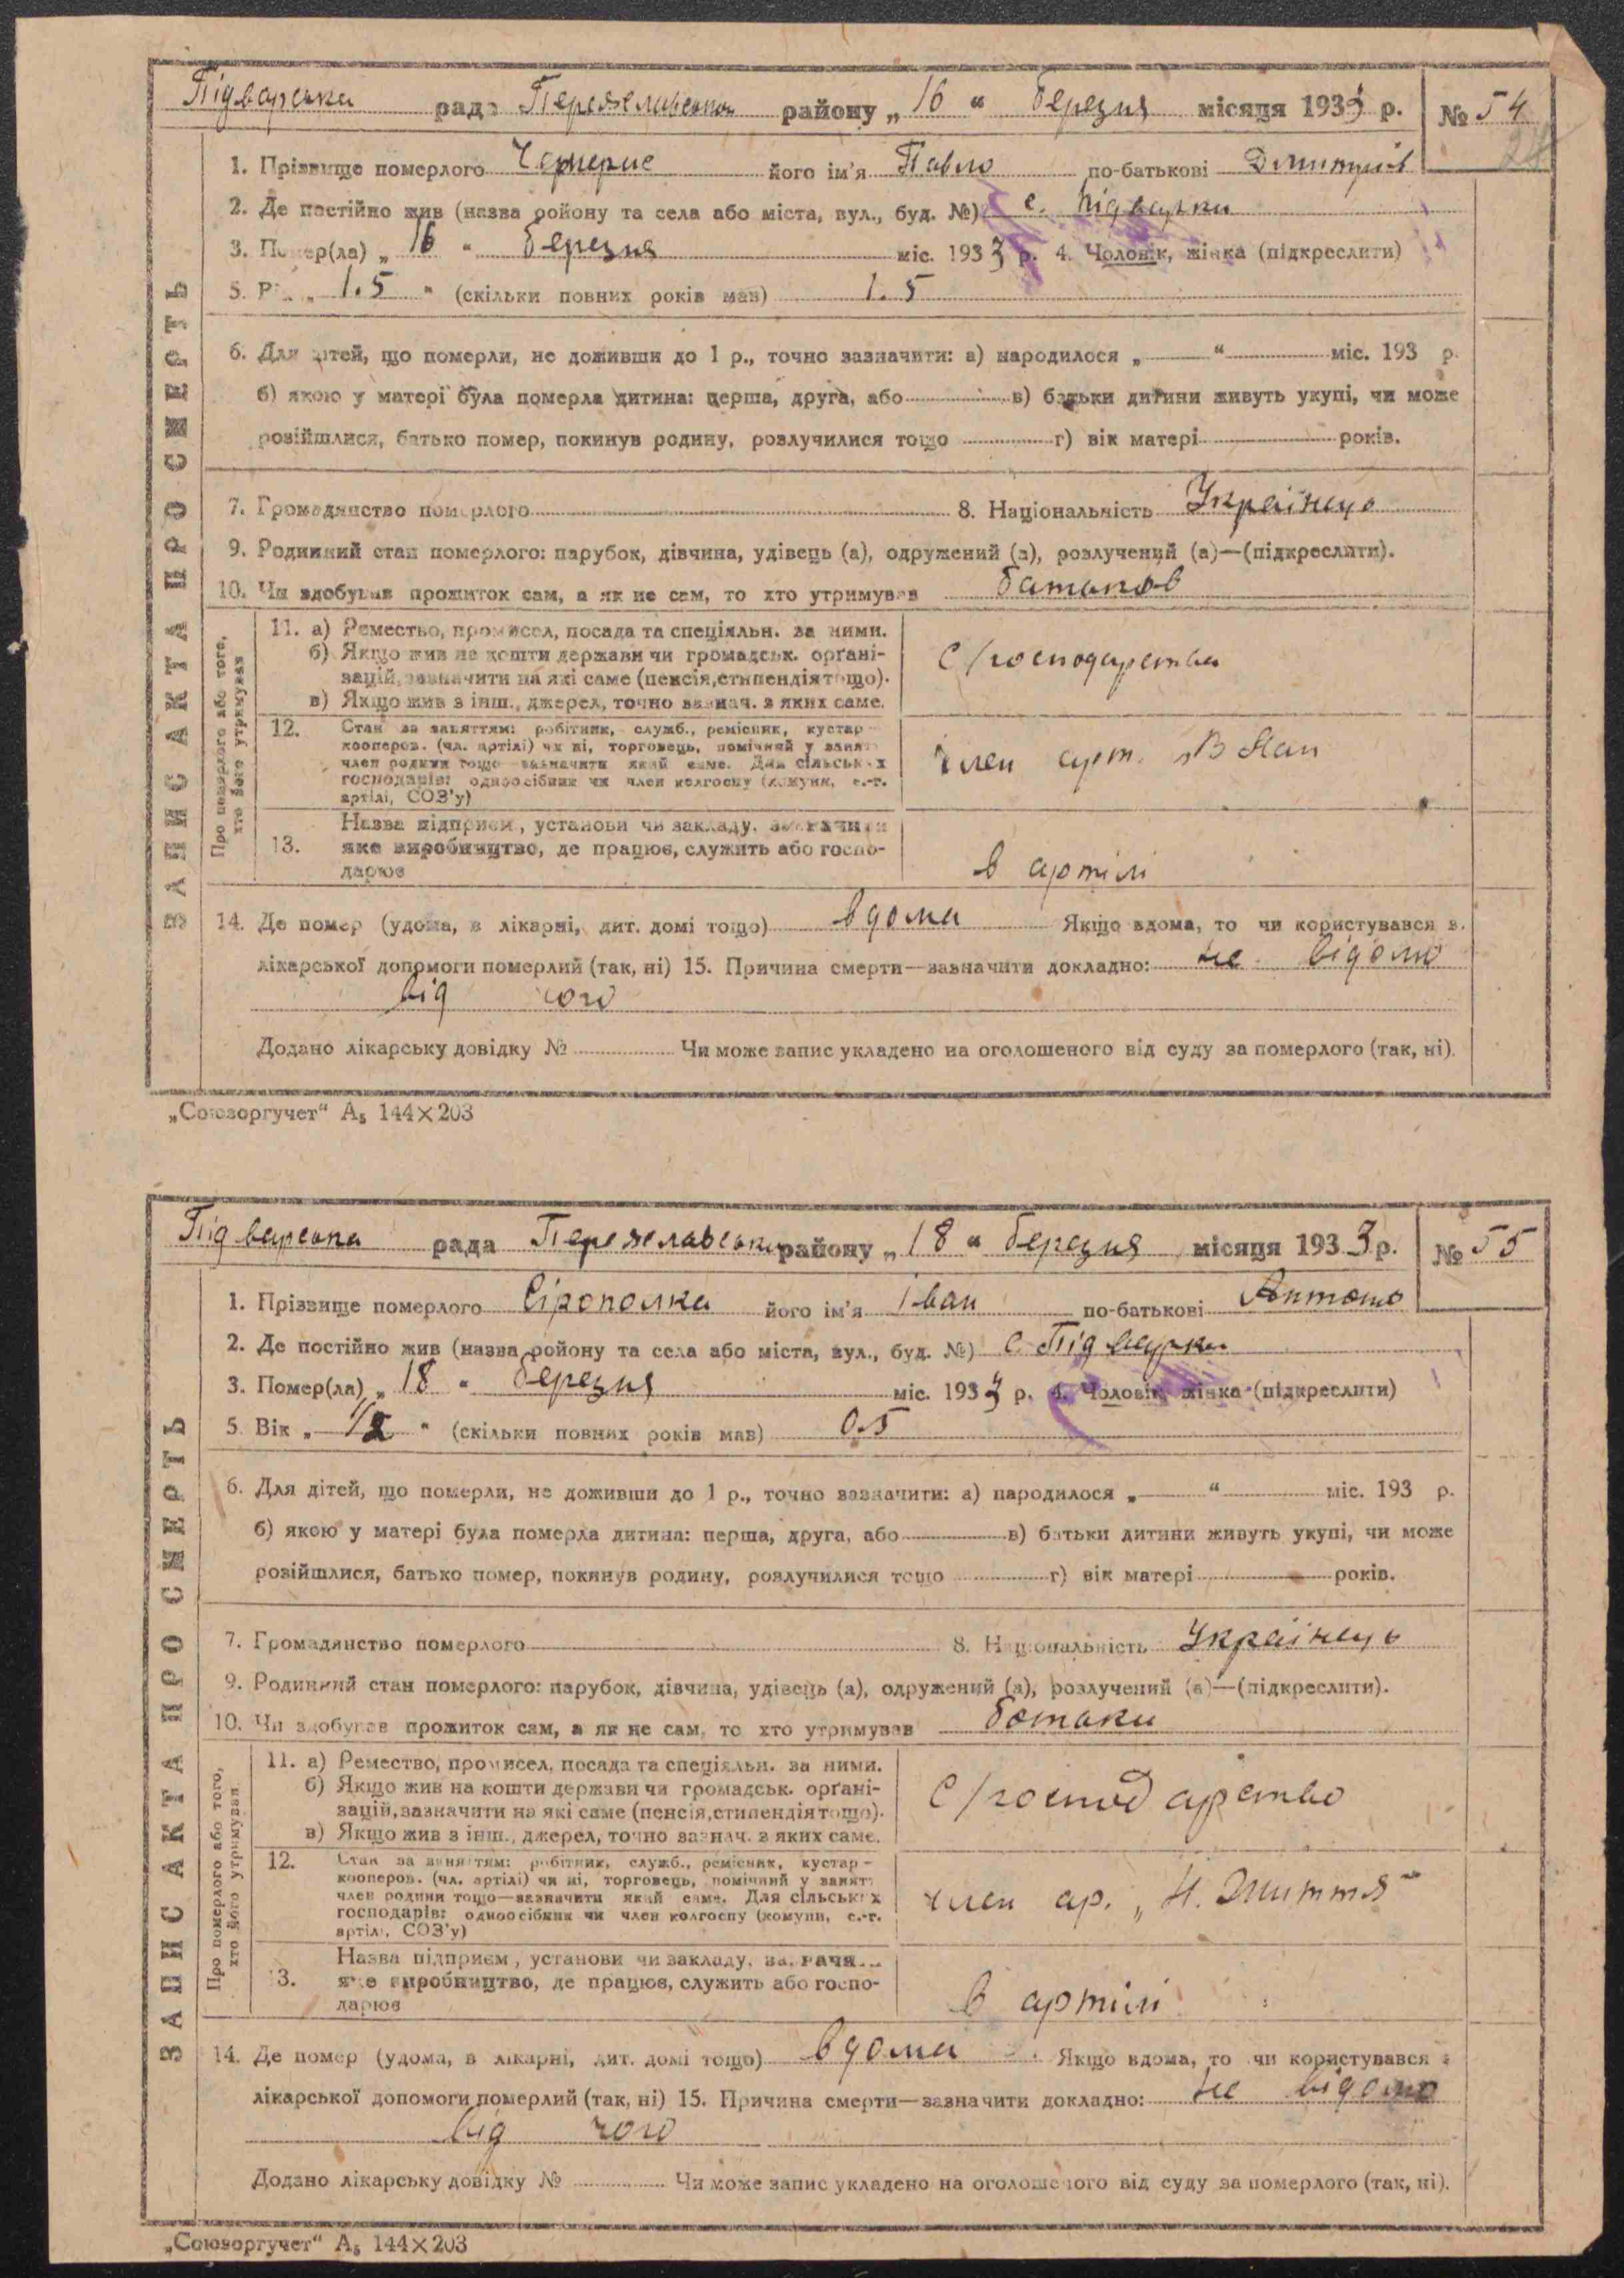 Підварська рада Переяславськ району „16“ березня місяця 1933 р. № 54
1. Прізвище померлого його ім'я Павло по-батькові Дмитрів
2. Де постійно жив (назва ройону та села або міста, вул., буд. №) с. Підварки
3. Помер(ла) „16“ березня міс. 1933 р. 4. Чоловік, жінка (підкреслити)
5. Вік „1.5“ (скільки повних років мав) 1.5
6. Для дітей, що померли, не доживши до 1 р., точно зазначити: а) народилося „ “ міс. 193 р.
б) якою у матері була померла дитина: перша, друга, або в) батьки дитини живуть укупі, чи може
розійшлися, батько помер, покинув родину, розлучилися тощо г) вік матері років.
7. Громадянство померлого 8. Національність Українець
9. Родинний стан померлого: парубок, дівчина, удівець (а), одружений (а), розлучений (а)—(підкреслити).
10. Чи здобував прожиток сам, а як не сам, то хто утримував
ЗАПИС АКТА ПРО СМЕРТЬ
Про померлого або того,
хто його утримував
11. а) Ремество, промисел, посада та спеціяльн. за ними.
б) Якщо жив на кошти держави чи громадськ. орґані-
зацій, зазначити на які саме (пенсія, стипендія тощо).
в) Якщо жив з інш., джерел, точно зазнач. з яких саме.
С/господарства
12. Стан за заняттям: робітник, служб., ремісник, кустар-
кооперов. (чл. артілі) чи ні, торговець, помічний у занят
член родини тощо—зазначити який саме. Для сільських
господарів: одноосібник чи член колгоспу (комуни, с.-г.
артілі, СОЗ'у)
член арт.
13. Назва підприєм, установи чи закладу, зазначити
яке виробництво, де працює, служить або госпо-
дарює
в артілі
14. Де помер (удома, в лікарні, дит. домі тощо) вдома Якщо вдома, то чи користувався в.
лікарської допомоги померлий (так, ні) 15. Причина смерти—зазначити докладно: не відомо
від чого
Додано лікарську довідку № Чи може запис укладено на оголошеного від суду за померлого (так, ні).
„Союзоргучет“ А₅ 144×203
Підварська рада Переяславськ району „18“ березня місяця 1933 р. № 55
1. Прізвище померлого Сірополка його ім'я Іван по-батькові
2. Де постійно жив (назва ройону та села або міста, вул., буд. №) с Підварки
3. Помер(ла) „18“ березня міс. 1933 р. 4. Чоловік, жінка (підкреслити)
5. Вік „1/2“ (скільки повних років мав) 0.5
6. Для дітей, що померли, не доживши до 1 р., точно зазначити: а) народилося „ “ міс. 193 р.
б) якою у матері була померла дитина: перша, друга, або в) батьки дитини живуть укупі, чи може
розійшлися, батько помер, покинув родину, розлучилися тощо г) вік матері років.
7. Громадянство померлого 8. Національність Українець
9. Родинний стан померлого: парубок, дівчина, удівець (а), одружений (а), розлучений (а)—(підкреслити).
10. Чи здобував прожиток сам, а як не сам, то хто утримував
ЗАПИС АКТА ПРО СМЕРТЬ
Про померлого або того,
хто його утримував
11. а) Ремество, промисел, посада та спеціяльн. за ними.
б) Якщо жив на кошти держави чи громадськ. орґані-
зацій, зазначити на які саме (пенсія, стипендія тощо).
в) Якщо жив з інш., джерел, точно зазнач. з яких саме.
С/господарство
12. Стан за заняттям: робітник, служб., ремісник, кустар-
кооперов. (чл. артілі) чи ні, торговець, помічний у занят
член родини тощо—зазначити який саме. Для сільських
господарів: одноосібник чи член колгоспу (комуни, с.-г.
артілі, СОЗ'у)
член ар. „Н. Життя“
13. Назва підприєм, установи чи закладу, зазначи
яке виробництво, де працює, служить або госпо-
дарює
в артілі
14. Де помер (удома, в лікарні, дит. домі тощо) вдома Якщо вдома, то чи користувався
лікарської допомоги померлий (так, ні) 15. Причина смерти—зазначити докладно: не відомо
від чого
Додано лікарську довідку № Чи може запис укладено на оголошеного від суду за померлого (так, ні).
„Союзоргучет“ А₅ 144×203